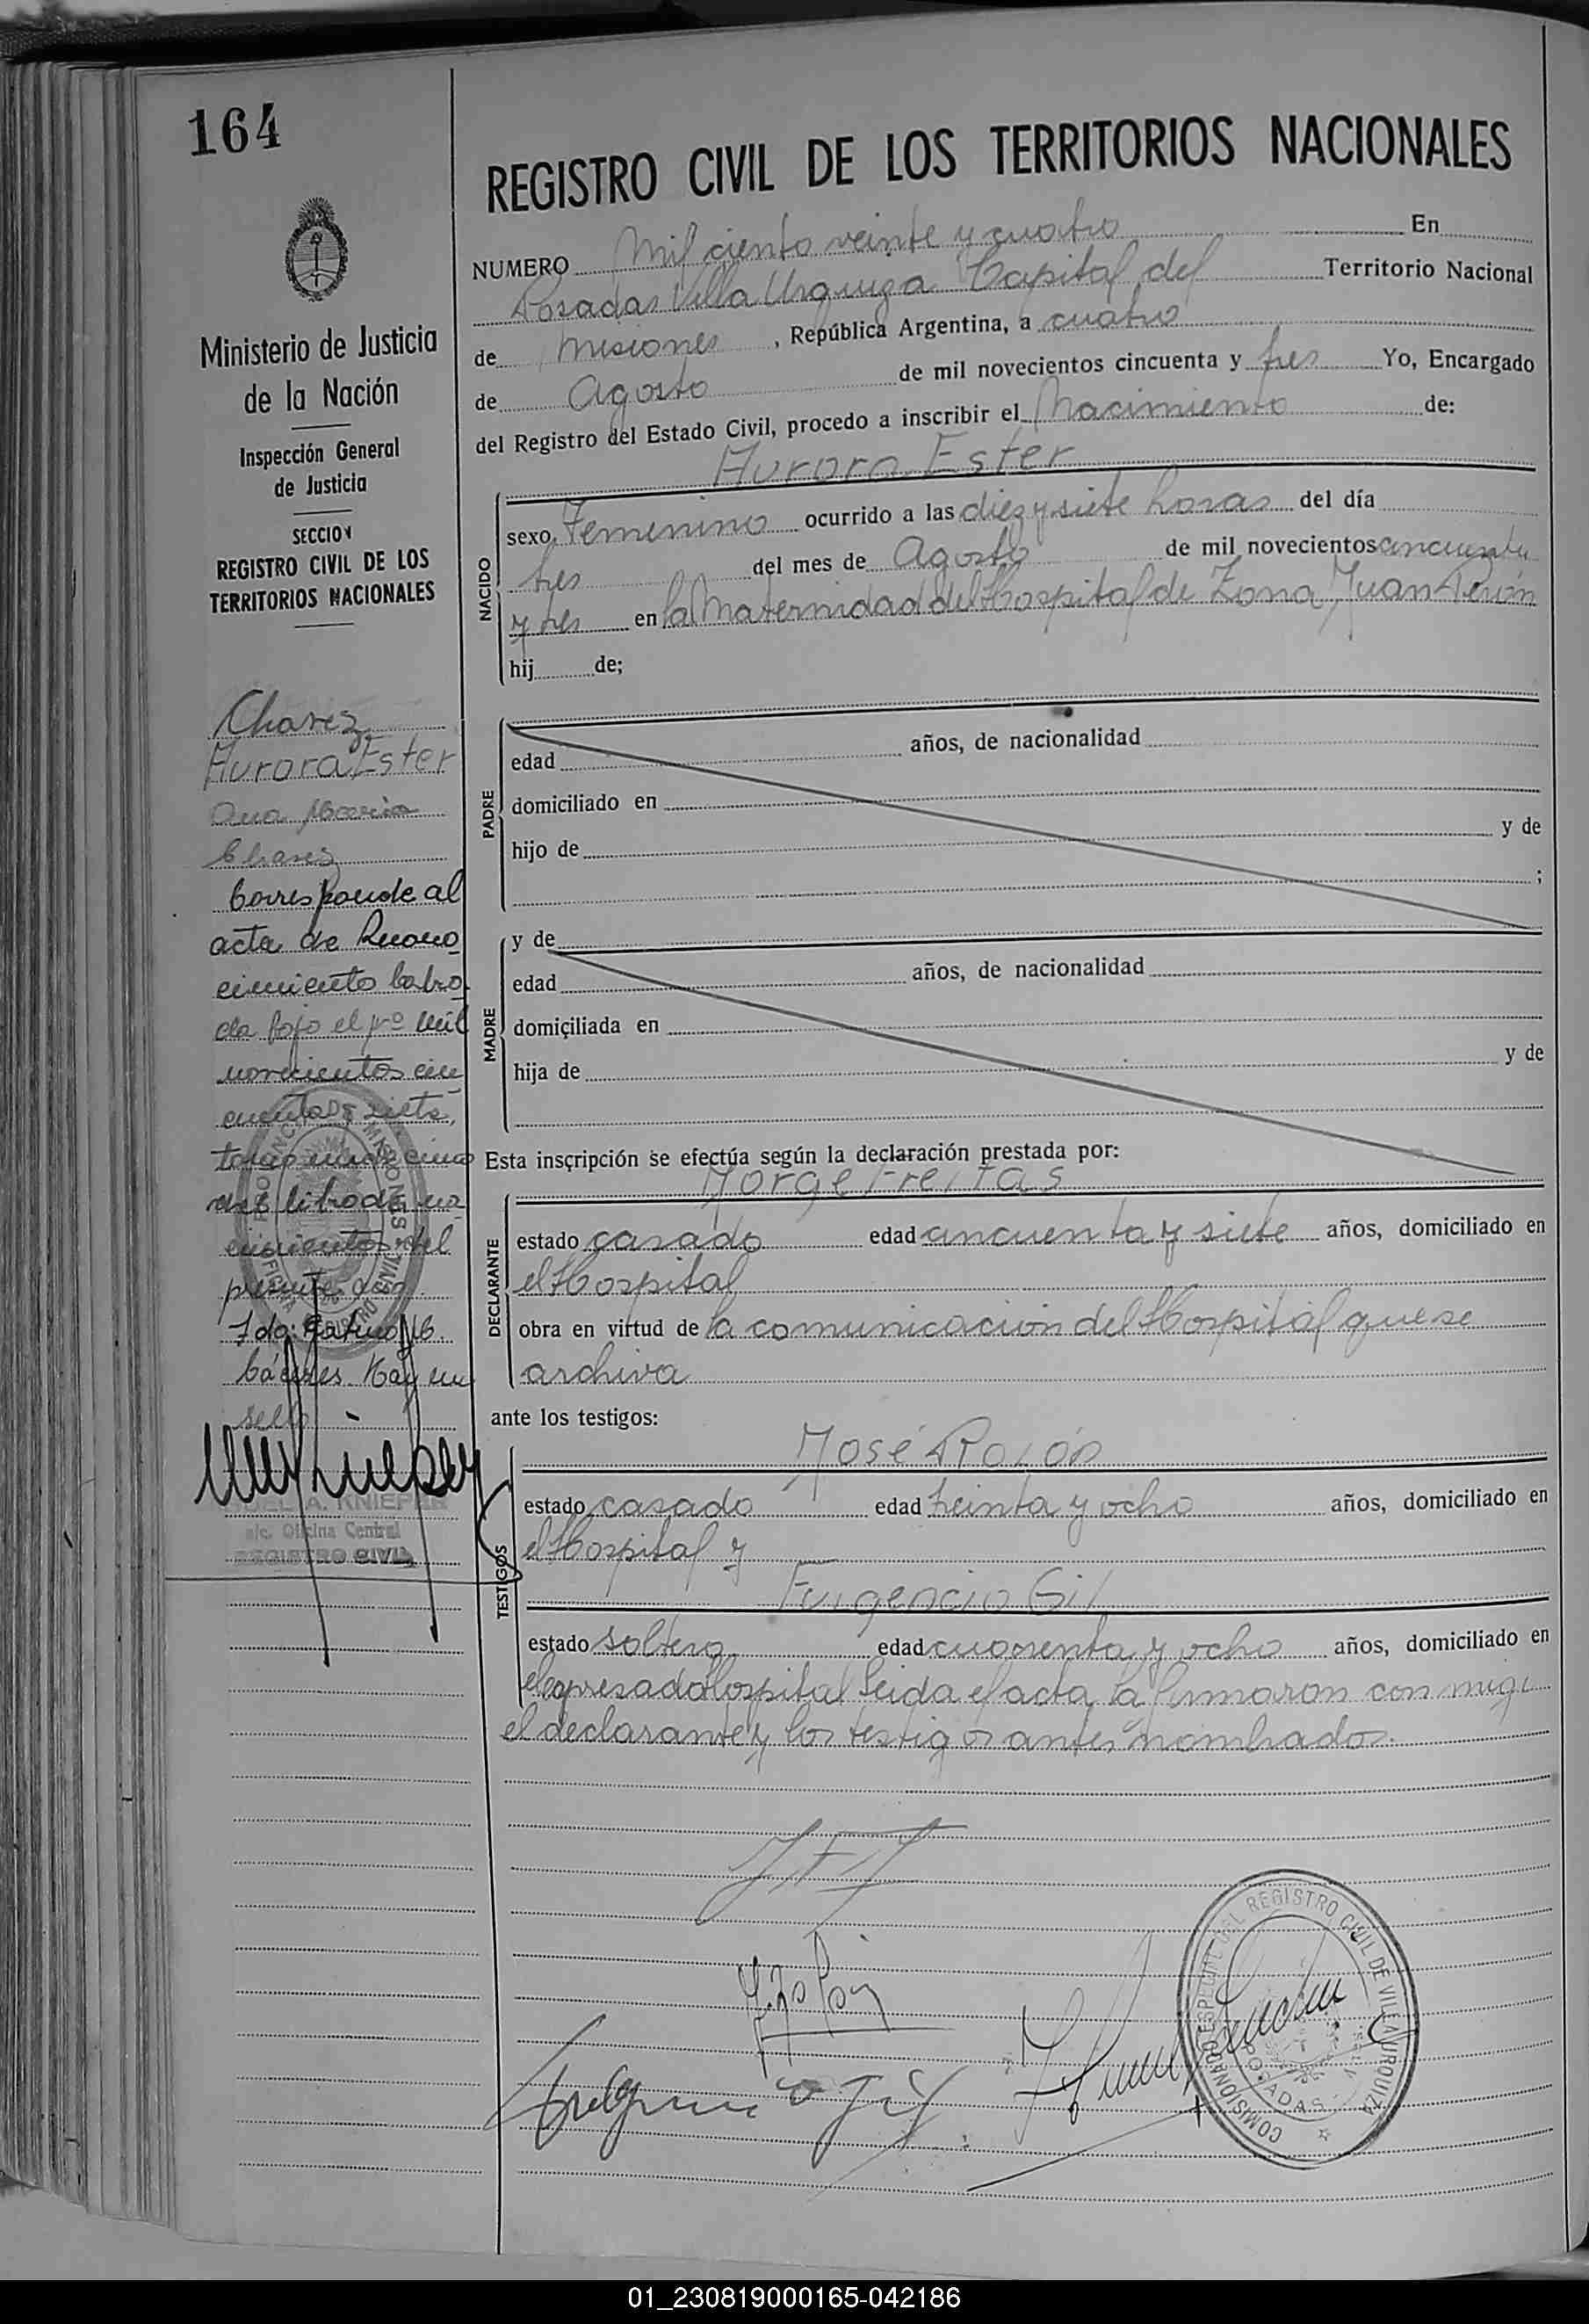 164
Ministerio de Justicia
de la Nación
Inspección General
de Justicia
SECCION
REGISTRO CIVIL DE LOS
TERRITORIOS NACIONALES
Chavez
Aurora Ester
Ana Maria
Chavez
Corresponde al
acta de Recono
cimiento labra
da bajo el nº mil
novecientos cin
cuenta y siete,
tomo
del libro de na
cimientos del
presente año.
Fdo:
Cáceres. Hay un
sello
A. KNIEPER
a/c. Oficina Central
REGISTRO CIVIL
REGISTRO CIVIL DE LOS TERRITORIOS NACIONALES
NUMERO Mil ciento veinte y cuatro En
Posadas Villa Urquiza Capital del Territorio Nacional
de Misiones, República Argentina, a cuatro
de Agosto de mil novecientos cincuenta y tres Yo, Encargado
del Registro del Estado Civil, procedo a inscribir el Nacimiento de:
Aurora Ester
NACIDO
sexo Femenino ocurrido a las diez y siete horas del día
tres del mes de Agosto de mil novecientos cincuenta
y tres en la Maternidad del Hospital de Zona Juan Perón
hij de;
PADRE
edad años, de nacionalidad
domiciliado en
hijo de y de
;
MADRE
y de
edad años, de nacionalidad
domiciliada en
hija de y de
Esta inscripción se efectúa según la declaración prestada por:
Jorge Freitas
DECLARANTE
estado casado edad cincuenta y siete años, domiciliado en
el Hospital
obra en virtud de la comunicación del Hospital que se
archiva
ante los testigos:
José Rolón
TESTIGOS
estado casado edad treinta y ocho años, domiciliado en
el Hospital y
Fulgencio Gil
estado soltero edad cuarenta y ocho años, domiciliado en
el expresado Hospital Leida el acta la firmaron con migo
el declarante y los testigos antes nombrados.
COMISIONADO ESPECIAL DEL REGISTRO CIVIL DE VILLA URQUIZA
POSADAS
01_230819000165-042186